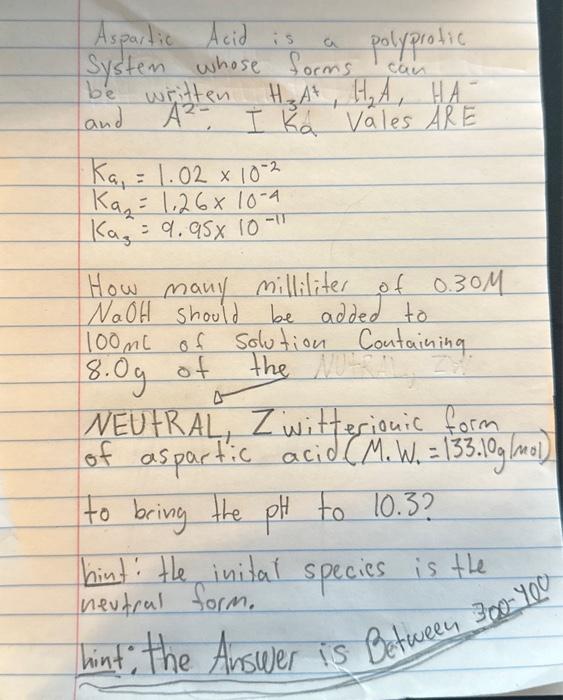 Aspartic Acid is a polyprotic
System whose forms can
be written H₃A⁺, H₂A, HA⁻
and A²⁻. I Ka Vales ARE
Ka₁ = 1.02 x 10⁻²
Ka₂ = 1.26 x 10⁻⁴
Ka₃ = 9.95x 10⁻¹¹
How many milliliter of 0.30M
NaOH should be added to
100mL of Solution Containing
8.0g of the NUTRAL, ZW
NEUTRAL, Zwitterionic form
of aspartic acid (M.W. = 133.10g/mol)
to bring the pH to 10.3?
hint: the inital species is the
neutral form.
hint: the Answer is Between 300-400